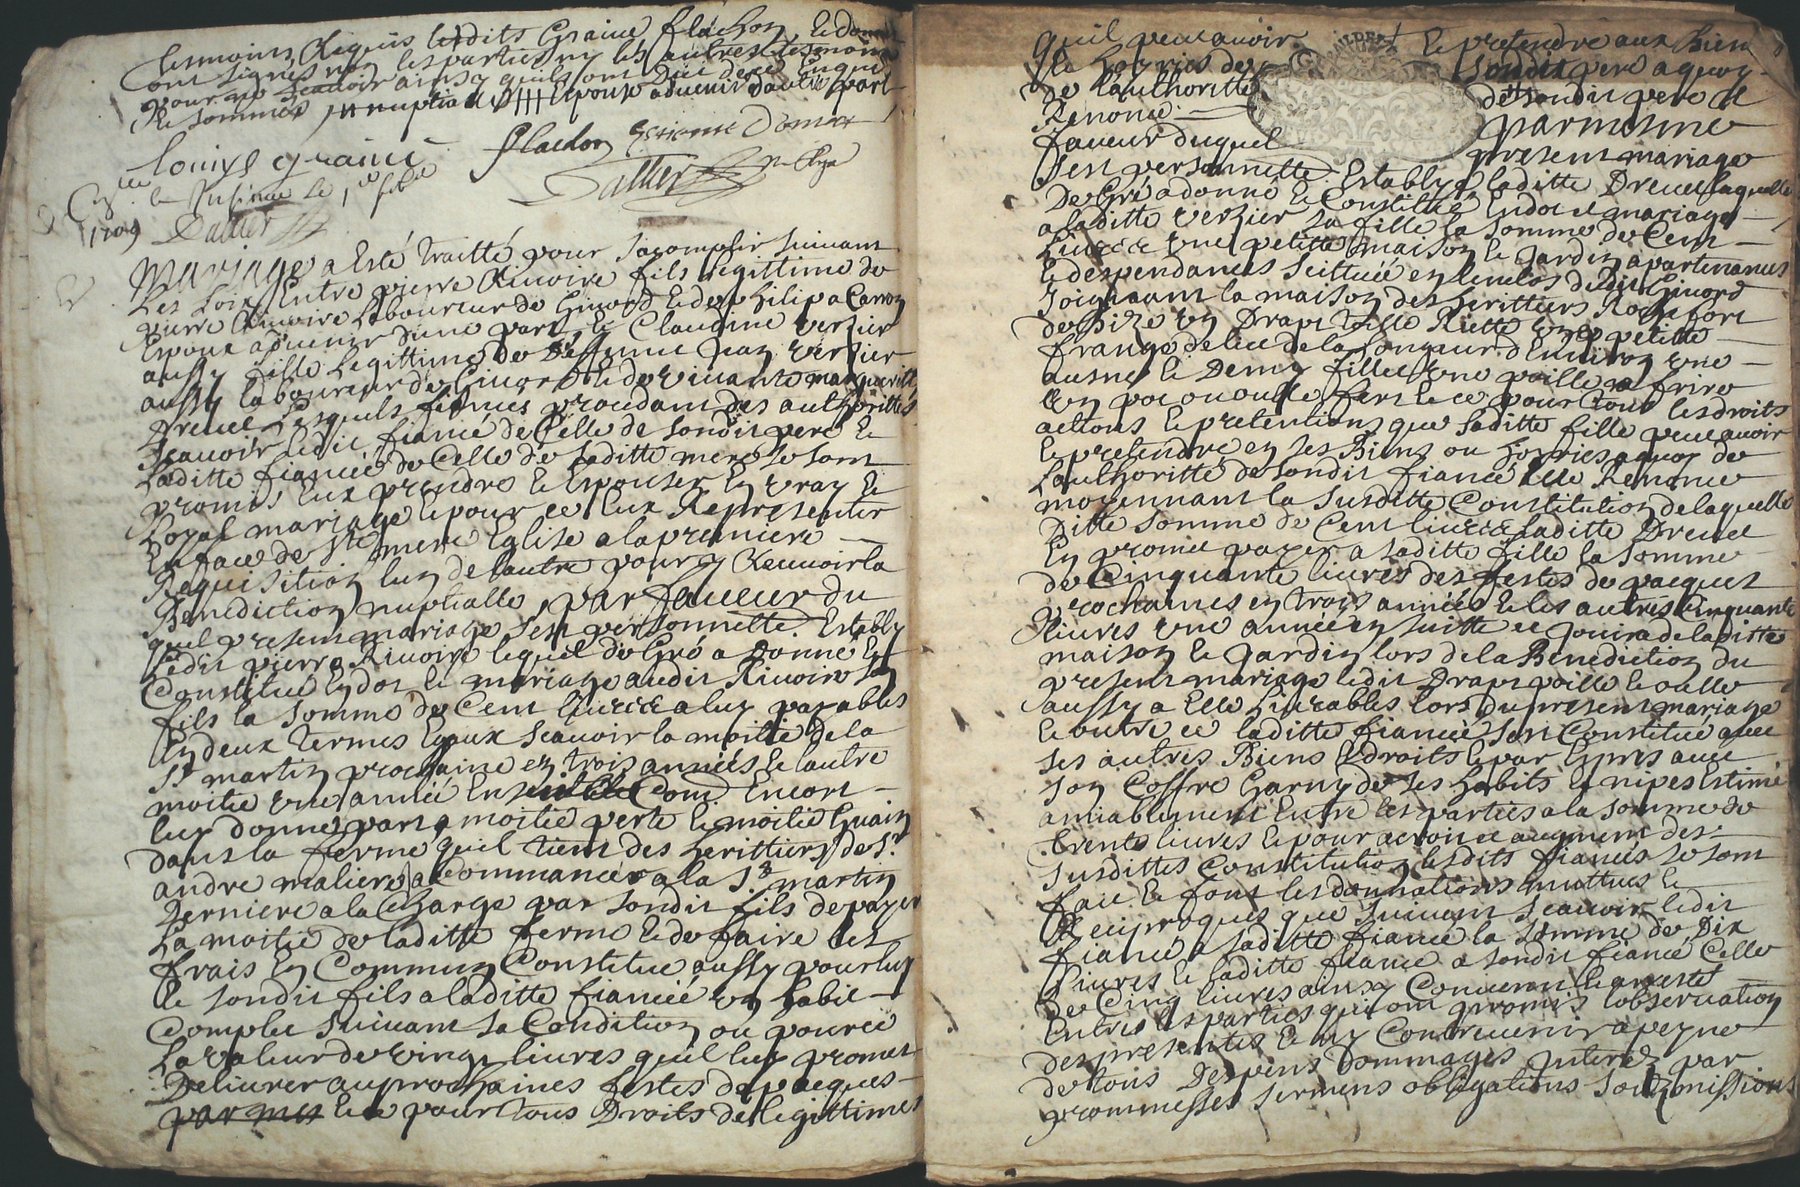 tesmoins Requis lesdits Graine flachon, et domer
ont signes non les parties ny les autres tesmoins
pour ne scavoir ainsy quils ont dit de ce Enquis
et sommes nuptial Epoux advenir dautre part
Louiys graine flachon Estienne Domer
Dallier
le 1er
1709 Dallier
Mariage a Esté traitté pour sacomplir suivant
Les Loix Entre pierre Rivoire fils legittime de
pierre Rivoire Laboureur de Givord et de philipa Carron
Epoux advenir dune part, et Claudine verzier
aussy fille Legittime de deffunt Jean verzier
aussy laboureur de Givord et de vivante marguerite
Drevet Lesquels fiancés procedant des authorittés
scavoir ledit fiancé de Celle de sondit pere et
laditte fiancée de Celle de saditte mere se sont
promis Eux prendre et Espouser En vray et
Loyal mariage et pour ce Eux Representer
En face de Ste mere Eglise a la premiere
Requisition lun de lautre pour y Recevoir la
Benediction nuptialle, par faveur du
quel present mariage sest personnelle. Estably
ledit pierre Rivoire lequel de Gré a donne et
Constitué En dot et mariage audit Rivoire son
fils la somme de Cent livres a luy payables
En deux termes Egaux scavoir la moitié de la
St martin prochaine en trois années et lautre
moitié une année Ensuitte Comme Encore
luy donne par moitié perte et moitié Guain
dans la ferme quil tient des heritiers de Sr
andre maliere a Commancer a la St martin
Derniere a la Charge par sondit fils de payer
La moitié de laditte ferme et de faire les
frais En Commun Constitue aussy pour luy
et sondit fils a laditte fiancée un habit
Complet suivant sa Condition ou pour ce
La valeur de vingt livres quil luy promet
Delivrer au prochaines festes de pacques
par mes et ce pour tous Droits de legittimes
quil peut avoir et pretendre aux Biens
et hoyries de sondit pere a quoy
de lauthoritté de sondit pere il
Renonce par mesme
faveur duquel present mariage
sest personnelle Establye laditte Drevet laquelle
De Gré a donné et Constitué En dot et mariage
a laditte verzier sa fille la somme de Cent
Livres une petitte maison et Jardin apartenances
et despendances scittuée en lenclos dedit Givord
Joignant la maison des heritiers Rochefort
de Size un Drapt toille Riette Une petitte
frange delice de la longueur denviron une
ausne et Demy fillet une poille a friro
Un pot ou oulle fert et ce pour tous les droits
actions et pretentions que saditte fille peut avoir
et pretendre en ses Biens ou hoyries a quoy de
lauthoritté de sondit fiancé Elle Renonce
moyennant la susditte Constitution de laquelle
Ditte somme de Cent livres laditte Drevet
En promet payer a saditte fille la somme
de Cinquante livres des festes de pacques
prochaines en trois années et les autres Cinquante
livres une année en suitte et Jouira de laditte
maison et Jardin lors de la Benediction du
present mariage ledit Drapt poille et oulle
aussy a Elle Livrables lors du present mariage
et outre ce laditte fiancée sest Constitué avec
ses autres Biens et droits et par Expres avec
son Coffre Garny de ses habits et nipes Estimé
amiablement Entre les parties a la somme de
trente livres et pour acroit et augment des
susdittes Constitution lesdits fiancés se sont
faict et font les donnations muttues et
Reciproques que suivent scavoir ledit
fiancé a saditte fiancée la somme de Dix
livres et laditte fiancée a sondit fiancé Celle
De Cinq livres ainsy Convenu et arresté
Entre les parties qui ont promis lobservation
des presentes et ny Contrevenir a peyne
de tous Despens Dommages Interez par
prommesses serments obligations soubzmissions